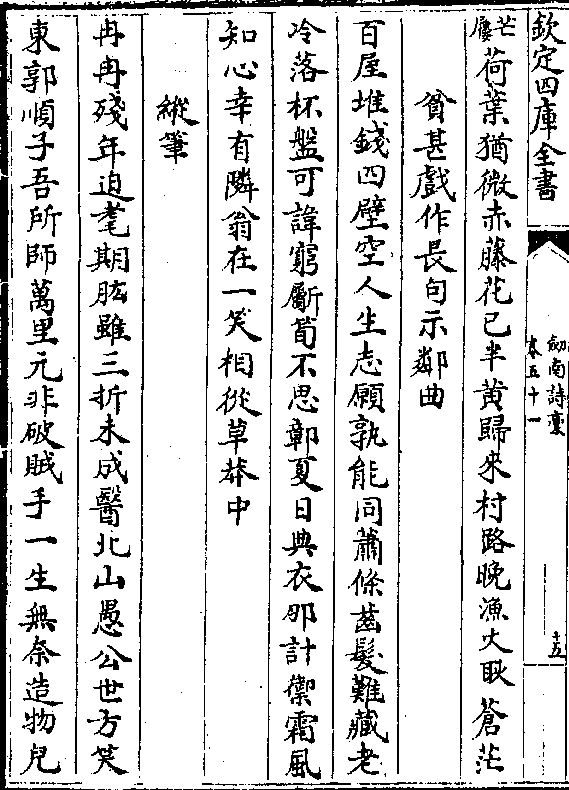 欽定四庫全書
劍南詩稾
卷五十一
十五
芒
屨
荷葉猶微赤藤花已半黃歸來村路晚漁火耿蒼茫
貧甚戲作長句示鄰曲
百屋堆錢四壁空人生志願孰能同蕭條齒髮難藏老
冷落杯盤可諱窮斸筍不思彰夏日典衣那計禦霜風
知心幸有隣翁在一笑相從草莽中
縱筆
冉冉殘年迫耄期肱雖三折未成醫北山愚公世方笑
東郭順子吾所師萬里元非破賊手一生無奈造物兒